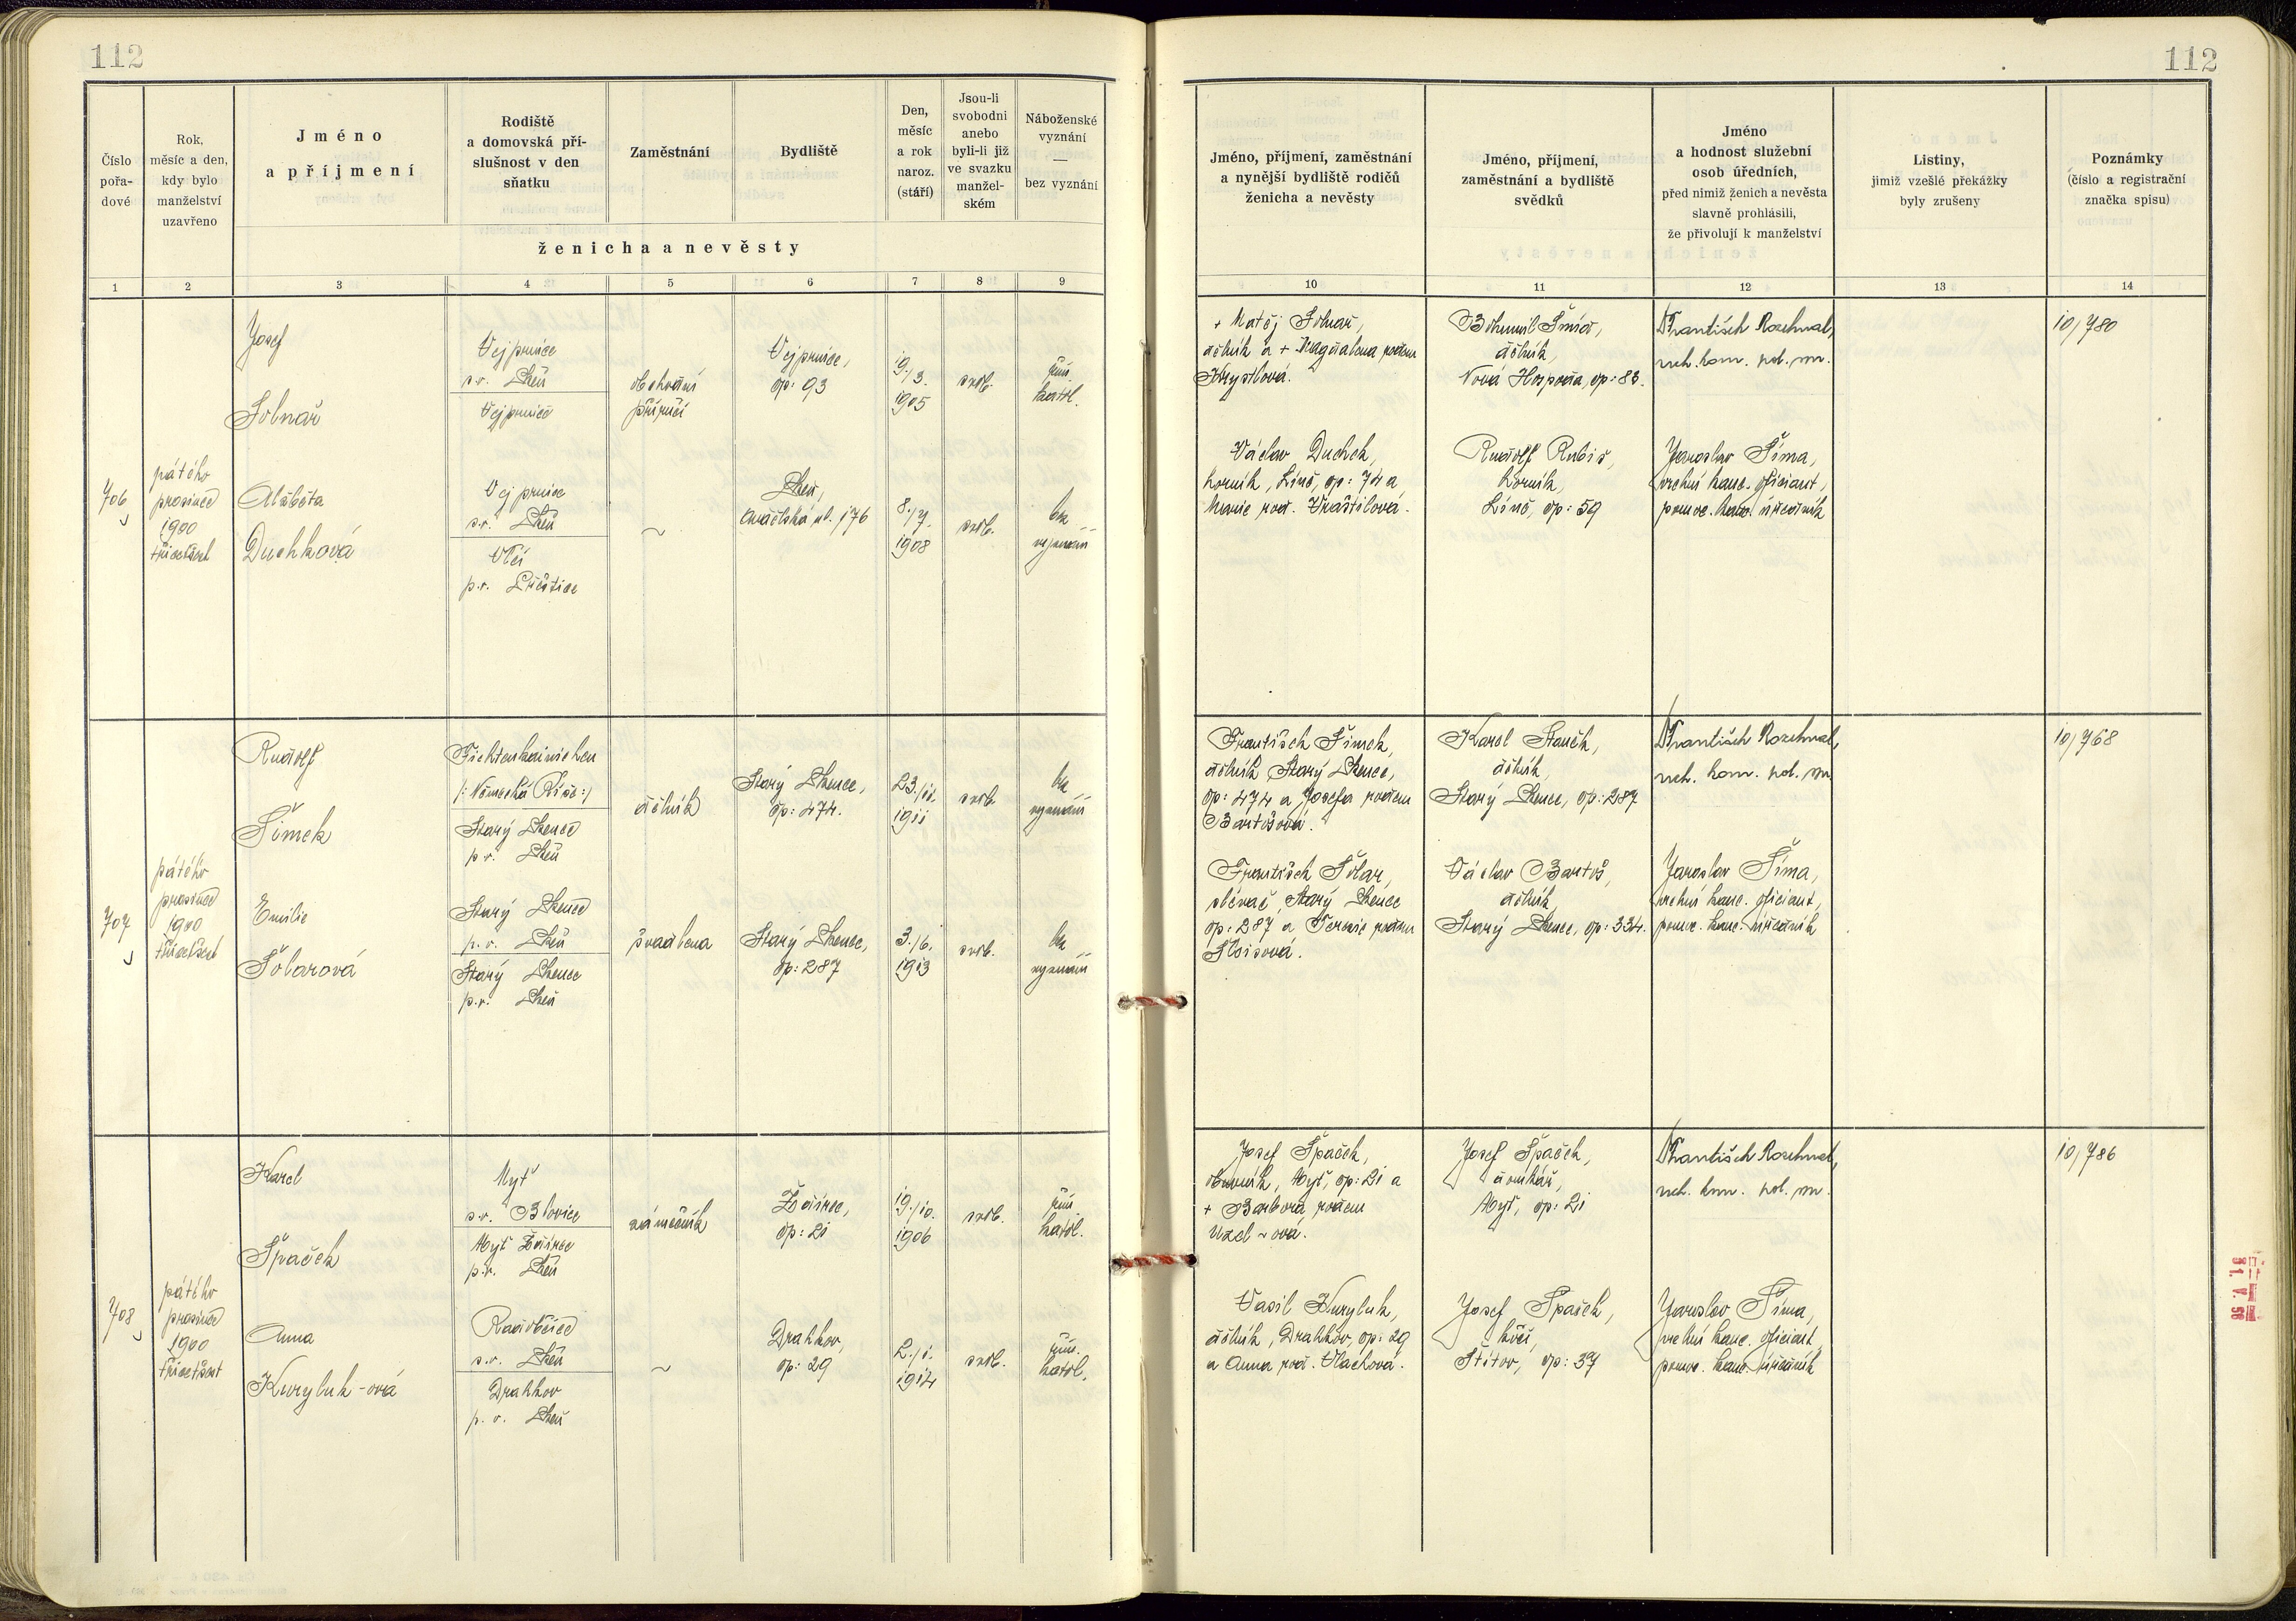 112
112
Číslo
pořa-
dové
Rok,
měsíc a den,
kdy bylo
manželství
uzavřeno
Jméno
a příjmení
Rodiště
a domovská pří-
slušnost v den
sňatku
Zaměstnání
Bydliště
Den,
měsíc
a rok
naroz.
(stáří)
Jsou-li
svobodni
anebo
byli-li již
ve svazku
manžel-
ském
Náboženské
vyznání
—
bez vyznání
ženicha a nevěsty
Jméno, příjmení, zaměstnání
a nynější bydliště rodičů
ženicha a nevěsty
Jméno, příjmení,
zaměstnání a bydliště
svědků
Jméno
a hodnost služební
osob úředních,
před nimiž ženich a nevěsta
slavně prohlásili,
že přivolují k manželství
Listiny,
jimiž vzešlé překážky
byly zrušeny
Poznámky
(číslo a registrační
značka spisu)
1 2 3 4 5 6 7 8 9 10 11 12 13 14
706
pátého
prosince
1900
třicet
Josef
Solnař
Vejprnice
s.r. Plzeň
Vejprnice
obchodní
příručí
Vejprnice,
čp: 93
19./3.
1905
svob.
řím.
katol.
Alžběta
Duchková
Vejprnice
s.r. Plzeň
Vlčí
p.r. Přeštice
~
Plzeň,
ul. 176
8./7.
1908
svob.
bez
vyznání
+ Matěj Solnař,
dělník a + Magdalena rodem
Krystlová.
Václav Duchek,
horník, Líně, čp: 74 a
Marie rod. Vraštilová.
Bohumil Šmíd,
dělník,
Nová Hospoda, čp: 83.
Rudolf Rubiš,
horník,
Líně, čp: 59
František Rozehnal,
vrch. kom. pol. spr.
Jaroslav Šíma,
vrchní kanc. oficiant,
pomoc. kanc. úředník
10/780
707
pátého
prosince
1900
třicet
Rudolf
Šimek
Fichtenhainichen
/: Německá Říše :/
Starý Plzenec
p.r. Plzeň
dělník
Starý Plzenec,
čp: 474.
23./11.
1911
svob.
bez
vyznání
Emilie
Šolarová
Starý Plzenec
p.r. Plzeň
Starý Plzenec
p.r. Plzeň
švadlena
Starý Plzenec,
čp: 287
3./6.
1913
svob.
bez
vyznání
František Šimek,
dělník, Starý Plzenec,
čp: 474 a Josefa rodem
Bartošová.
František Šolar,
slévač, Starý Plzenec
čp: 287 a Terezie rodem
Karel Staněk,
dělník,
Starý Plzenec, čp: 287
Václav Bartoš,
dělník,
Starý Plzenec, čp: 334.
František Rozehnal,
vrch. kom. pol. spr.
Jaroslav Šíma,
vrchní kanc. oficiant,
pomoc. kanc. úředník
10/768
708
pátého
prosince
1900
třicet
Karel
Špaček
Mýť
s.r. Blovice
Mýť Ždírec
p.r. Plzeň
zámečník
Ždírec,
čp: 21
19./10.
1906
svob.
řím.
katol.
Anna
Kuryluk-ová
Radobčice
s.r. Plzeň
Drahkov
p.r. Plzeň
~
Drahkov,
čp: 29
2./1.
1914
svob.
řím.
katol.
Josef Špaček,
Mýť, čp: 21 a
+ Barbora rodem
Uzel-ová.
Vasil Kuryluk,
dělník, Drahkov, čp: 29
a Anna rod. Vlachová.
Josef Špaček,
domkář,
Mýť, čp: 21
Josef Špaček,
kočí,
Štítov, čp: 37
František Rozehnal,
vrch. kom. pol. spr.
Jaroslav Šíma,
vrchní kanc. oficiant,
pomoc. kanc. úředník
10/786